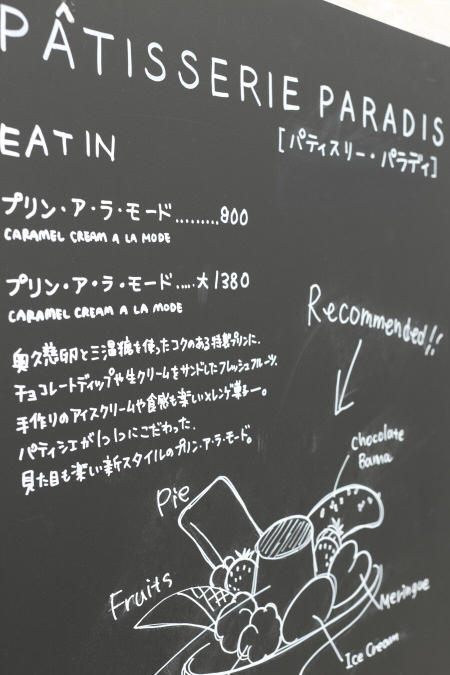 PÂTISSERIE PARADIS
[パティスリー・パラディ]
EAT IN
プリン・ア・ラ・モード.........800
CARAMEL CREAM A LA MODE
プリン・ア・ラ・モード.....大 1380
CARAMEL CREAM A LA MODE
奥久慈卵と三温糖を使ったコクのある特製プリンに、
チョコレートディップや生クリームをサンドしたフレッシュフルーツ、
手作りのアイスクリームや食感も楽しいメレンゲ菓子…。
パティシエが1つ1つにこだわった、
見た目も楽しい新スタイルのプリン・ア・ラ・モード。
Recommended!!
Chocolate
Banana
Pie
Fruits
Meringue
Ice Cream